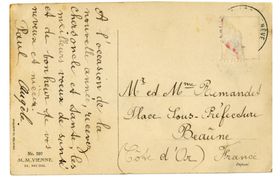 A l'occasion de la
nouvelle année, recevez
chers oncle et tante, les
meilleurs voeux de santé
et de bonheur de vos
neveux et nièce
Paul Angèle
No. 280
M.M. VIENNE.
Mr et Mme Rimandet
Place Sous-Préfecture
Beaune
(Côte d'Or) France